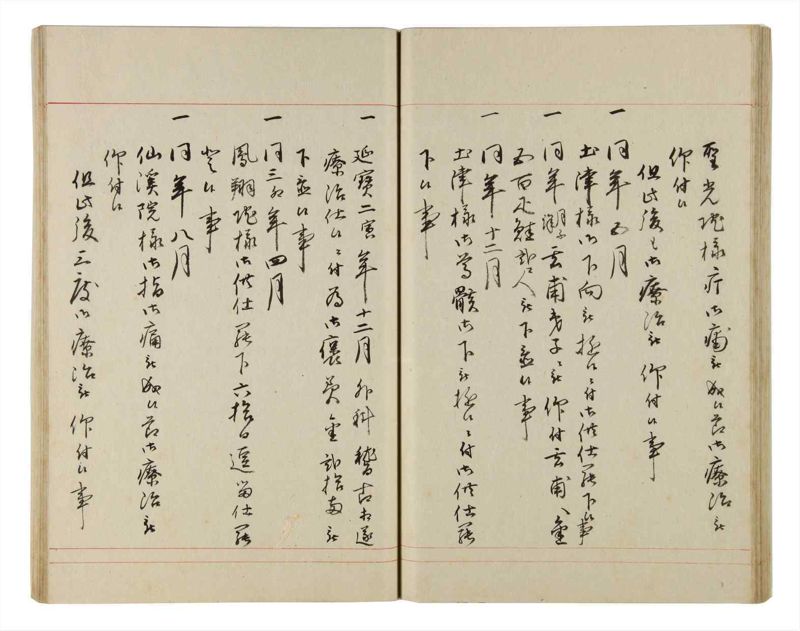 聖光院様疔御痛被成候節御療治被
仰付候
但此後も御療治被仰付候事
一同年五月
土津様御下向被遊候ニ付御供仕罷下候事
一同年 玄甫弟子ニ被仰付玄甫へ金
五百疋鮭 被下置候事
一同年十二月
土津様御尊骸御下被遊候ニ付御供仕罷
下候事
一延宝二寅年十二月外科稽古相遂
療治仕候ニ付為御褒美金 拾両被
下置候事
一同三卯年四月
鳳翔院様御供仕罷下六拾日逗留仕罷
登候事
一同年八月
仙渓院様御指御痛被成候節御療治被
仰付候
但此後三度御療治被仰付候事